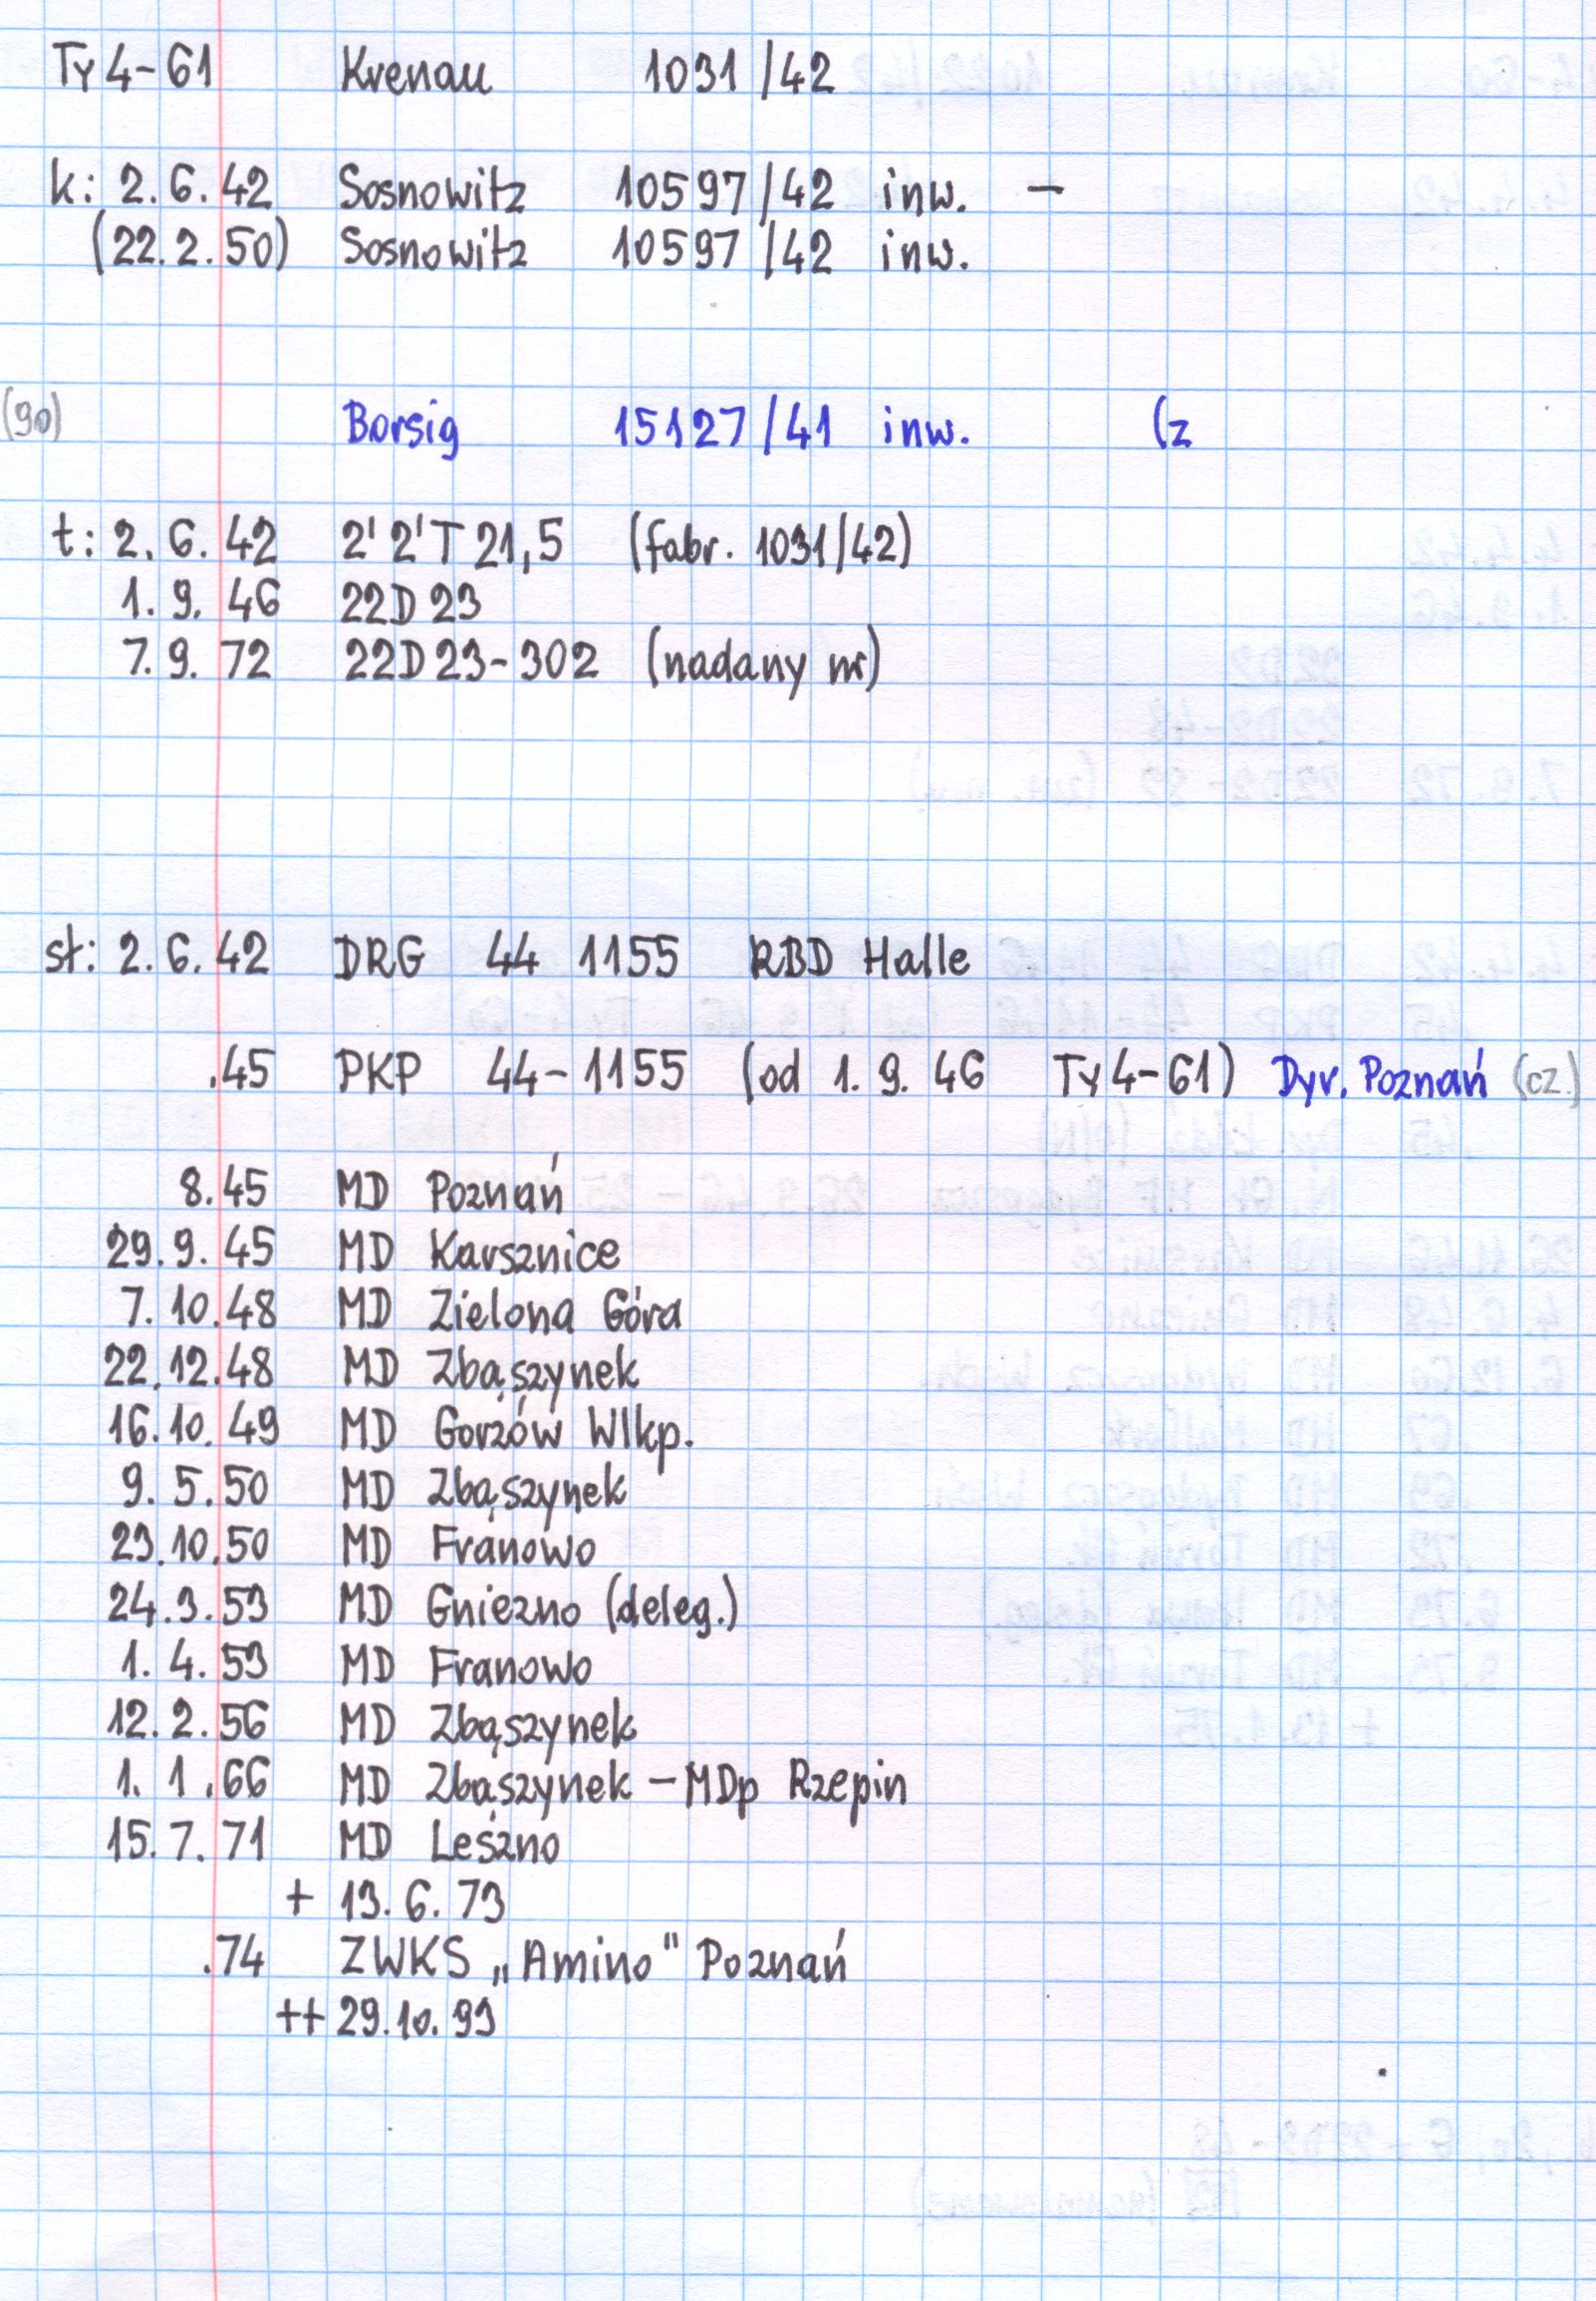 Ty 4-61 Krenau 1031/42
k: 2.6.42 Sosnowitz 10597/42 inw. —
(22.2.50) Sosnowitz 10597/42 inw.
(90) Borsig 15127/41 inw. (z
t: 2.6.42 2'2'T 21,5 (fabr. 1031/42)
1.9.46 22D 23
7.9.72 22D 23-302 (nadany nr)
st: 2.6.42 DRG 44 1155 RBD Halle
.45 PKP 44-1155 (od 1.9.46 Ty 4-61) Dyr. Poznań (cz.)
8.45 MD Poznań
29.9.45 MD Karsznice
7.10.48 MD Zielona Góra
22.12.48 MD Zbąszynek
16.10.49 MD Gorzów Wlkp.
9.5.50 MD Zbąszynek
23.10.50 MD Franowo
24.3.53 MD Gniezno (deleg.)
1.4.53 MD Franowo
12.2.56 MD Zbąszynek
1.1.66 MD Zbąszynek – MDp Rzepin
15.7.71 MD Leszno
+ 13.6.73
.74 ZWKS „Amino" Poznań
++ 29.10.93